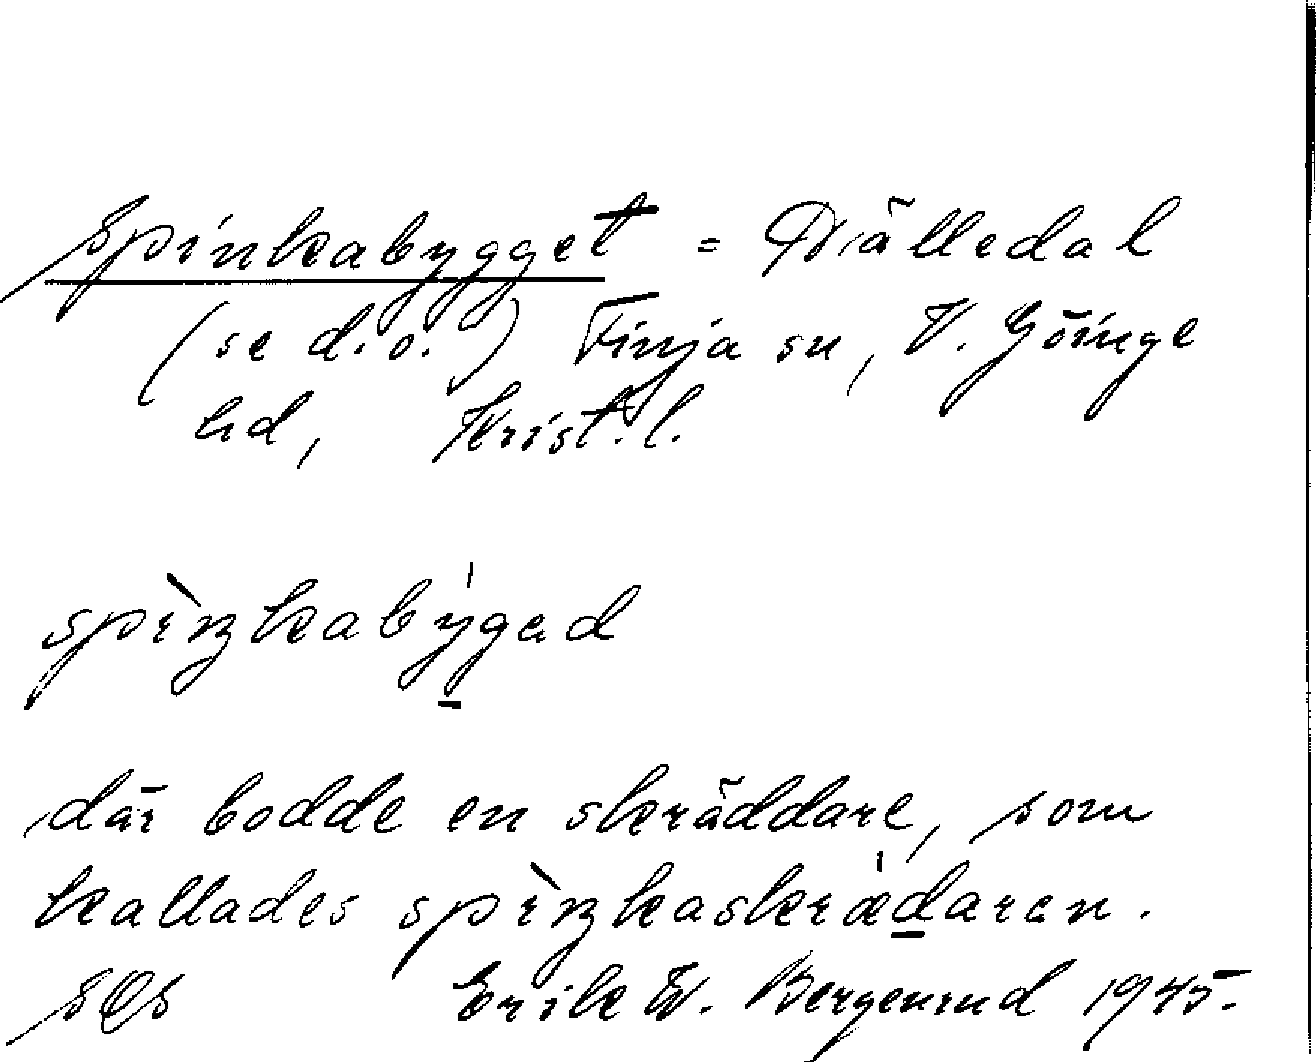 Spinkabygget = Djälledal
(se d.o.) Finja sn, V. Göinge
hd, Krist. l.
spìŋkabýgad
där bodde en skräddare, som
kallades spìŋkaskræ̍daran.
Erik W. Bergenrud 1945.